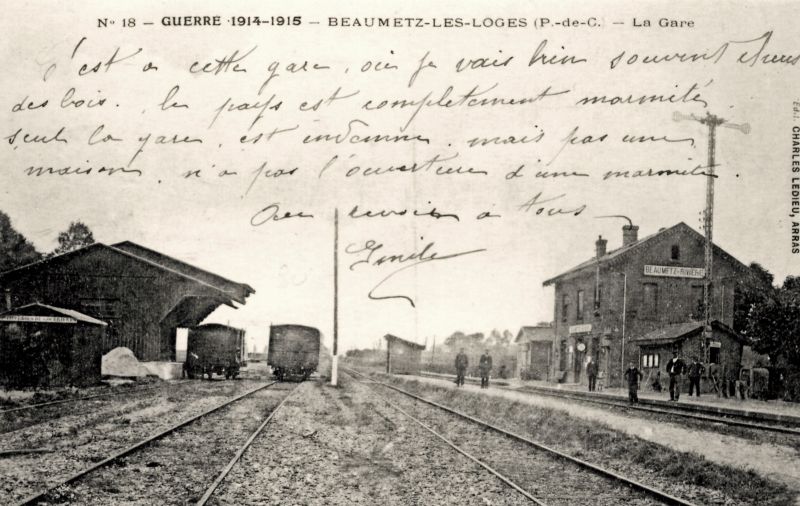 No 18 — GUERRE 1914-1915 — BEAUMETZ-LES-LOGES (P.-de-C.) — La Gare
C'est a cette gare, où je vais bien souvent
des bois. le pays est completement marmité
seul la gare, est indemne, mais pas une
maison, n'a pas l'ouverture d'une marmite.
Au revoir a tous
Emile
BEAUMETZ-RIVIÈRE
Édit. CHARLES LEDIEU, ARRAS